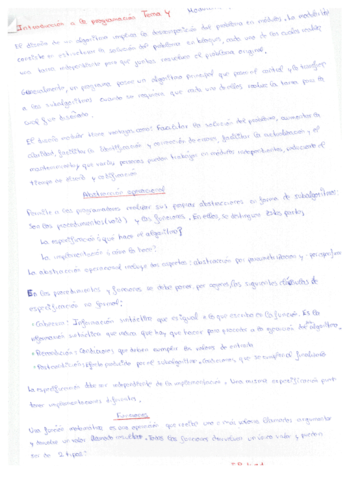 Introducción a la programación Tema 4
El diseño de un algoritmo implica la descomposición del problema en módulos. La modularidad
consiste en estructurar la solución del problema en bloques, cada uno de los cuales realiza
una tarea independiente para que juntos resuelvan el problema original.
Generalmente, un programa posee un algoritmo principal que posee el control y lo transfiere
a los subalgoritmos cuando se requiere que cada uno de ellos realice la tarea para la
cual fue diseñado.
El diseño modular tiene ventajas como: Facilitar la solución del problema, aumentar la
claridad, facilita la identificación y corrección de errores, facilitar la actualización y el
mantenimiento y que varias personas puedan trabajar en módulos independientes, reduciendo el
tiempo de diseño y codificación
Abstracción operacional
Permite a los programadores realizar sus propias abstracciones en forma de subalgoritmos
Son los procedimientos (void) y las funciones. En ellos, se distinguen dos partes,
La especificación ¿qué hace el algoritmo?
La implementación ¿cómo lo hace?
La abstracción operacional incluye dos aspectos: abstracción por parametrización y por especificación
En los procedimientos y funciones se debe poner, por encima, los siguientes elementos de
especificación no formal:
• Cabecera: Información sintáctica
• Precondición: Condiciones que deben cumplir los valores de entrada
• Postcondición: producido por el subalgoritmo. Condiciones que se cumplen al finalizar
La especificación debe ser independiente de la implementación. Una misma especificación puede
tener implementaciones distintas.
Funciones
Una función matemática es una operación que recibe uno o más valores llamados argumentos
y devuelve un valor llamado resultado. Todas las funciones devuelven un único valor y pueden
ser de 2 tipos: